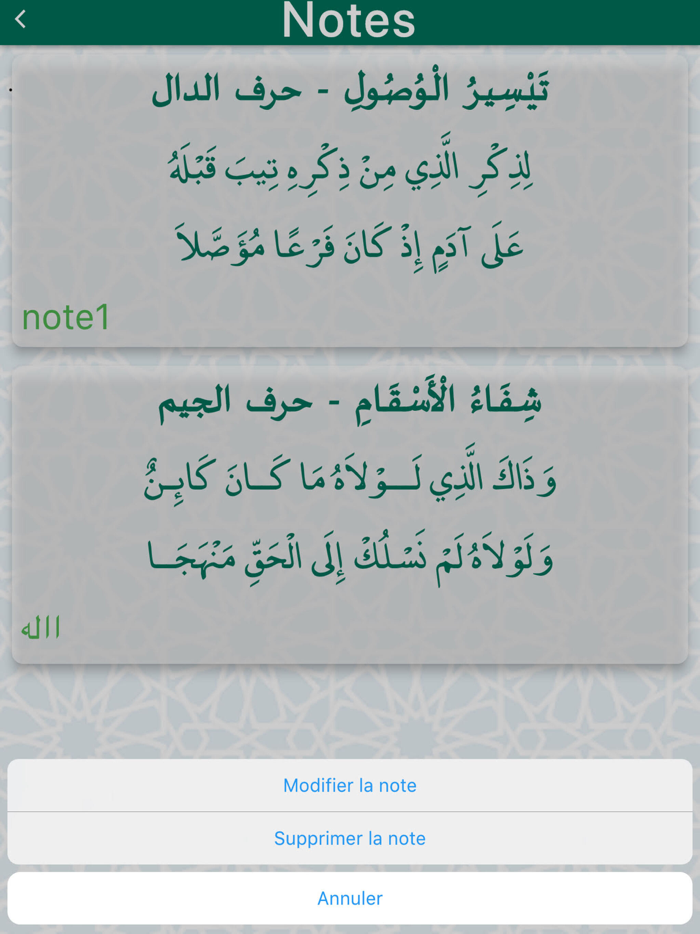 Notes
تَيْسِيرُ الْوُصُولِ - حرف الدال
لِذِكْرِ الَّذِي مِنْ ذِكْرِهِ تِيبَ قَبْلَهُ
عَلَى آدَمٍ إِذْ كَانَ فَرْعًا مُؤَصَّلاَ
note1
شِفَاءُ الْأَسْقَامِ - حرف الجيم
وَذَاكَ الَّذِي لَـــوْلاَهُ مَا كَـــانَ كَائِـنٌ
وَلَوْلاَهُ لَمْ نَسْلُكْ إِلَى الْحَقِّ مَنْهَجَــا
االه
Modifier la note
Supprimer la note
Annuler